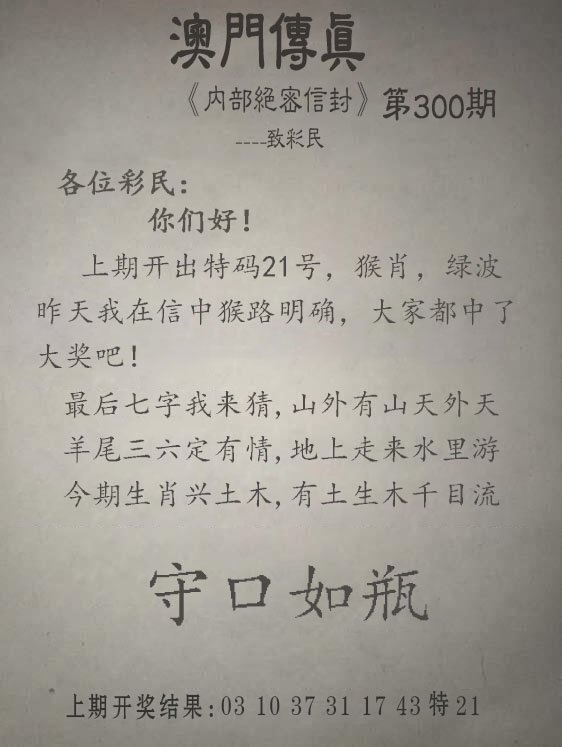 澳門傳真
《内部絕密信封》第300期
----致彩民
各位彩民：
你们好！
上期开出特码21号，猴肖，绿波
昨天我在信中猴路明确，大家都中了
大奖吧！
最后七字我来猜,山外有山天外天
羊尾三六定有情,地上走来水里游
今期生肖兴土木,有土生木千目流
守口如瓶
上期开奖结果：03 10 37 31 17 43 特 21